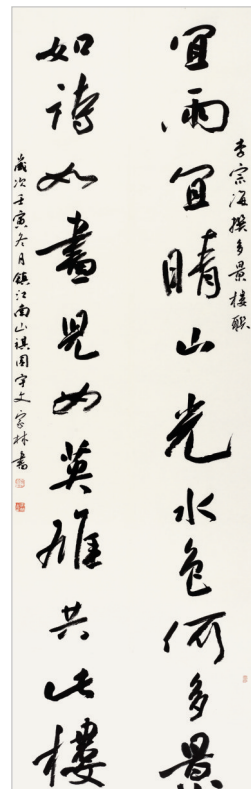 李宗海撰多景楼联
宜雨宜晴山光水色何多景
如诗如畫兒女英雄共此樓
歲次壬寅冬月鎮江南山祺園宇文家林書